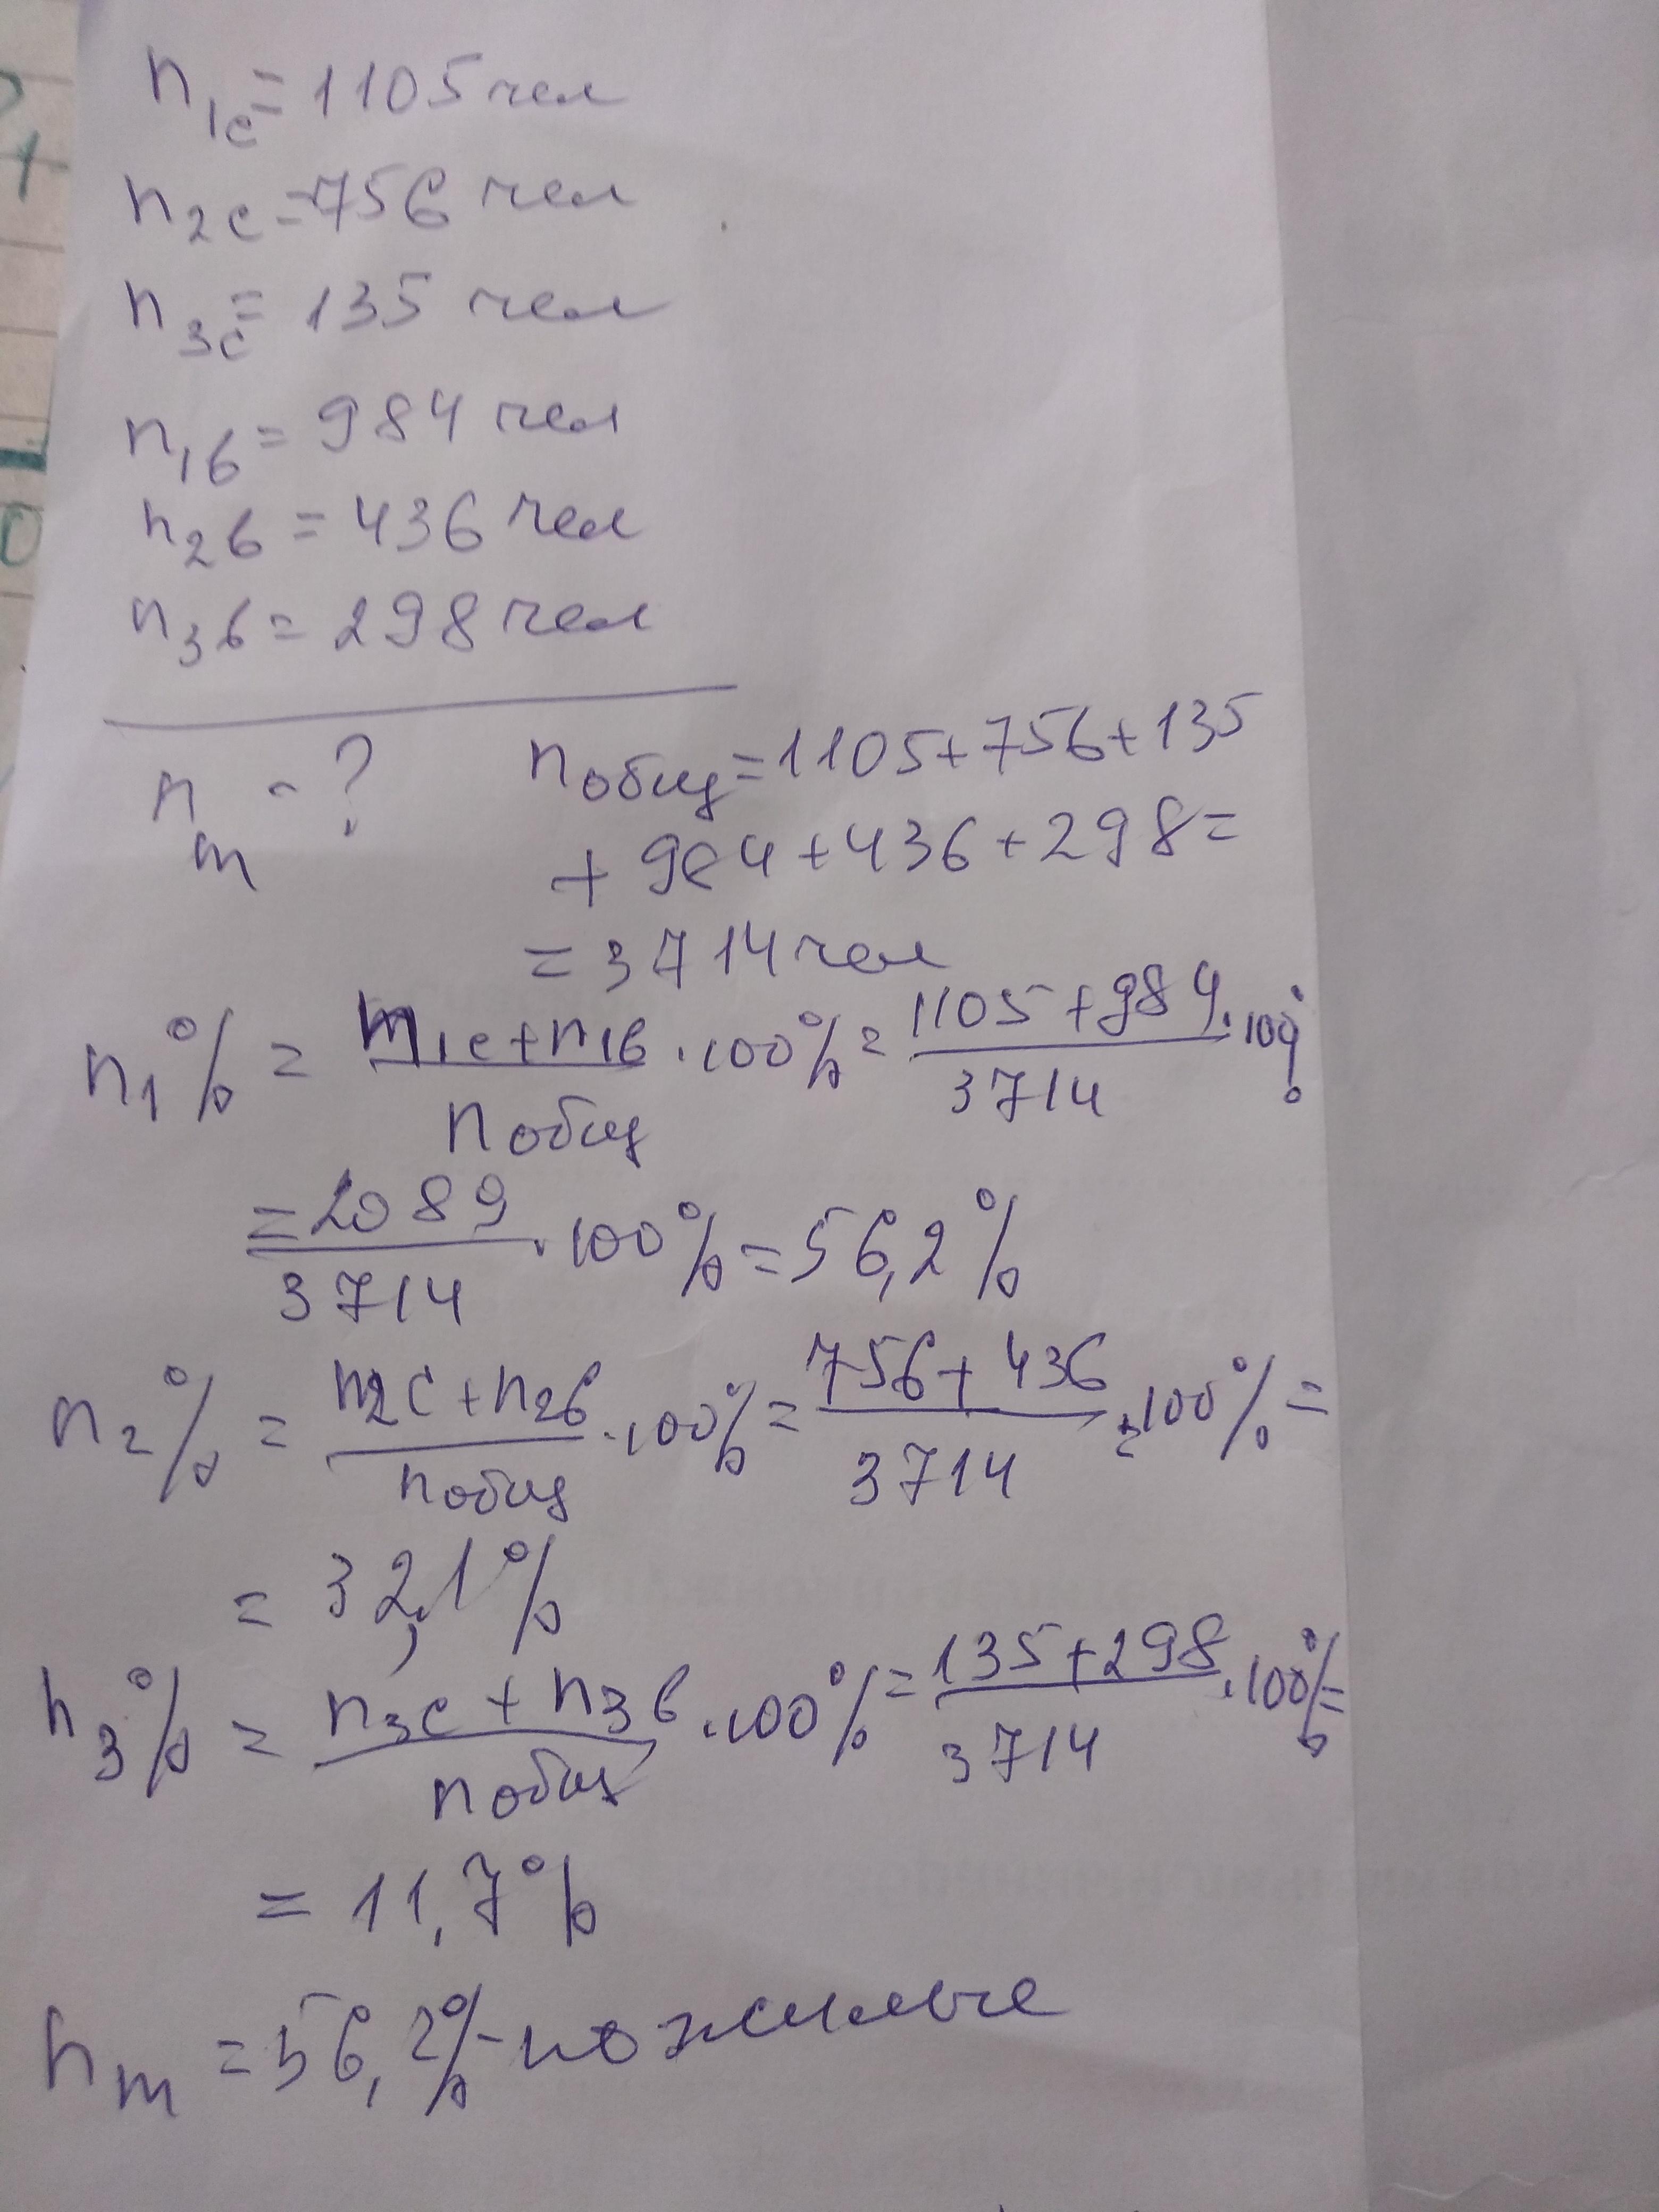 n1с = 1105 чел
n2с = 756 чел
n3с = 135 чел
n1в = 984 чел
n2в = 436 чел
n3в = 298 чел
nm - ?
nобщ = 1105 + 756 + 135
+ 984 + 436 + 298 =
= 3714 чел
n1% = n1с + n1в / nобщ · 100% = 1105 + 984 / 3714 · 100%
= 2089 / 3714 · 100% = 56,2%
n2% = n2с + n2в / nобщ · 100% = 756 + 436 / 3714 · 100% =
= 32,1%
n3% = n3с + n3в / nобщ · 100% = 135 + 298 / 3714 · 100% =
= 11,7%
nm = 56,2% - пожилые